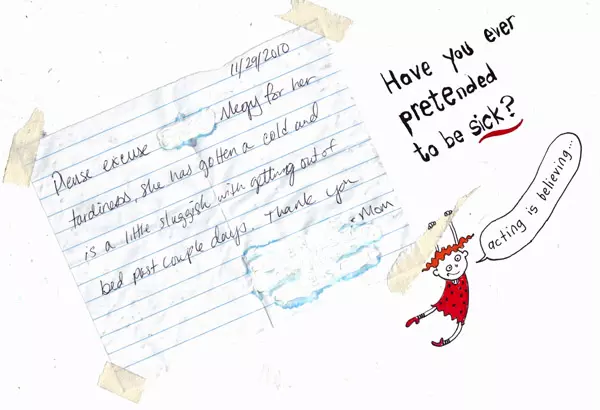 11/29/2010
Please excuse Megy for her
tardiness, she has gotten a cold and
is a little sluggish with getting out of
bed past couple days. Thank you
- Mom
Have you ever
pretended
to be sick?
acting is believing...